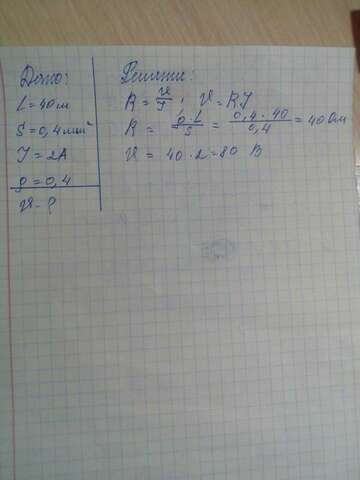 Дано:
l = 40 м
S = 0,4 мм²
I = 2А
ρ = 0,4
U - ?
Решение:
R = U/I ; U = RI
R = ρ·l/S = 0,4·40/0,4 = 40 Ом
U = 40·2 = 80 В